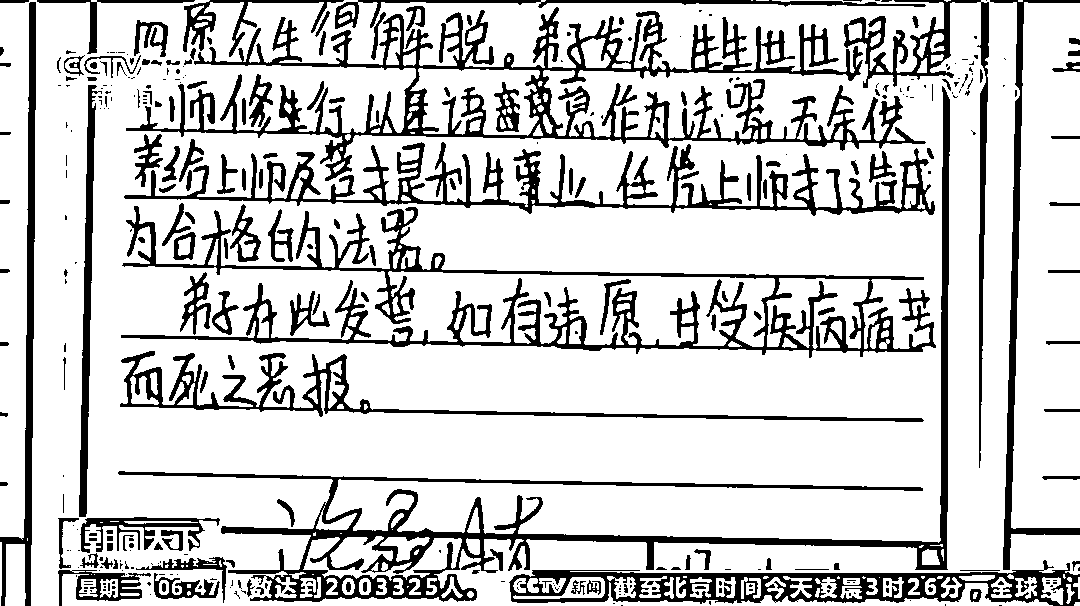 四愿众生得解脱。弟子发愿生生世世跟随
上师修行，以身语意作为法器，无余供
养给上师及菩提利生事业，任凭上师打造成
为合格的法器。
弟子在此发誓，如有违愿，甘受疾病痛苦
而死之恶报。
CCTV
新闻
朝闻天下
星期二 06:47 人数达到2003325人。 CCTV新闻 截至北京时间今天凌晨3时26分，全球累计